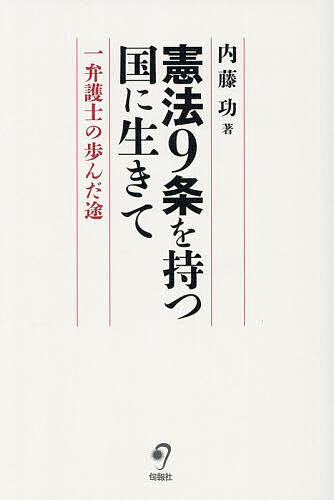 内藤 功 著
憲法9条を持つ
国に生きて
一弁護士の歩んだ途
旬報社